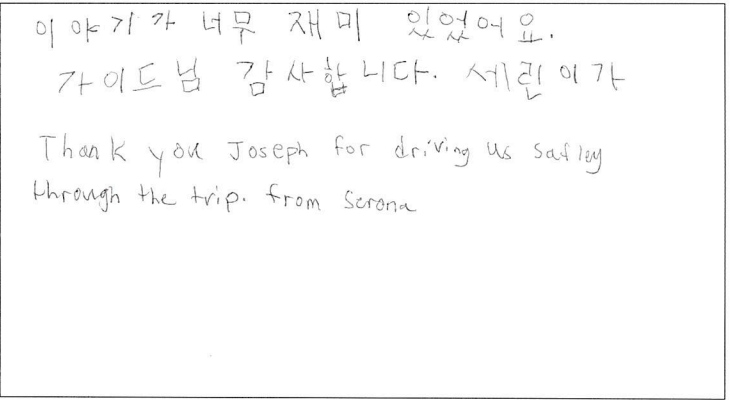 이야기가 너무 재미 있었어요.
가이드님 감사합니다. 세린이가
Thank you Joseph for driving us safley
through the trip. from Serona